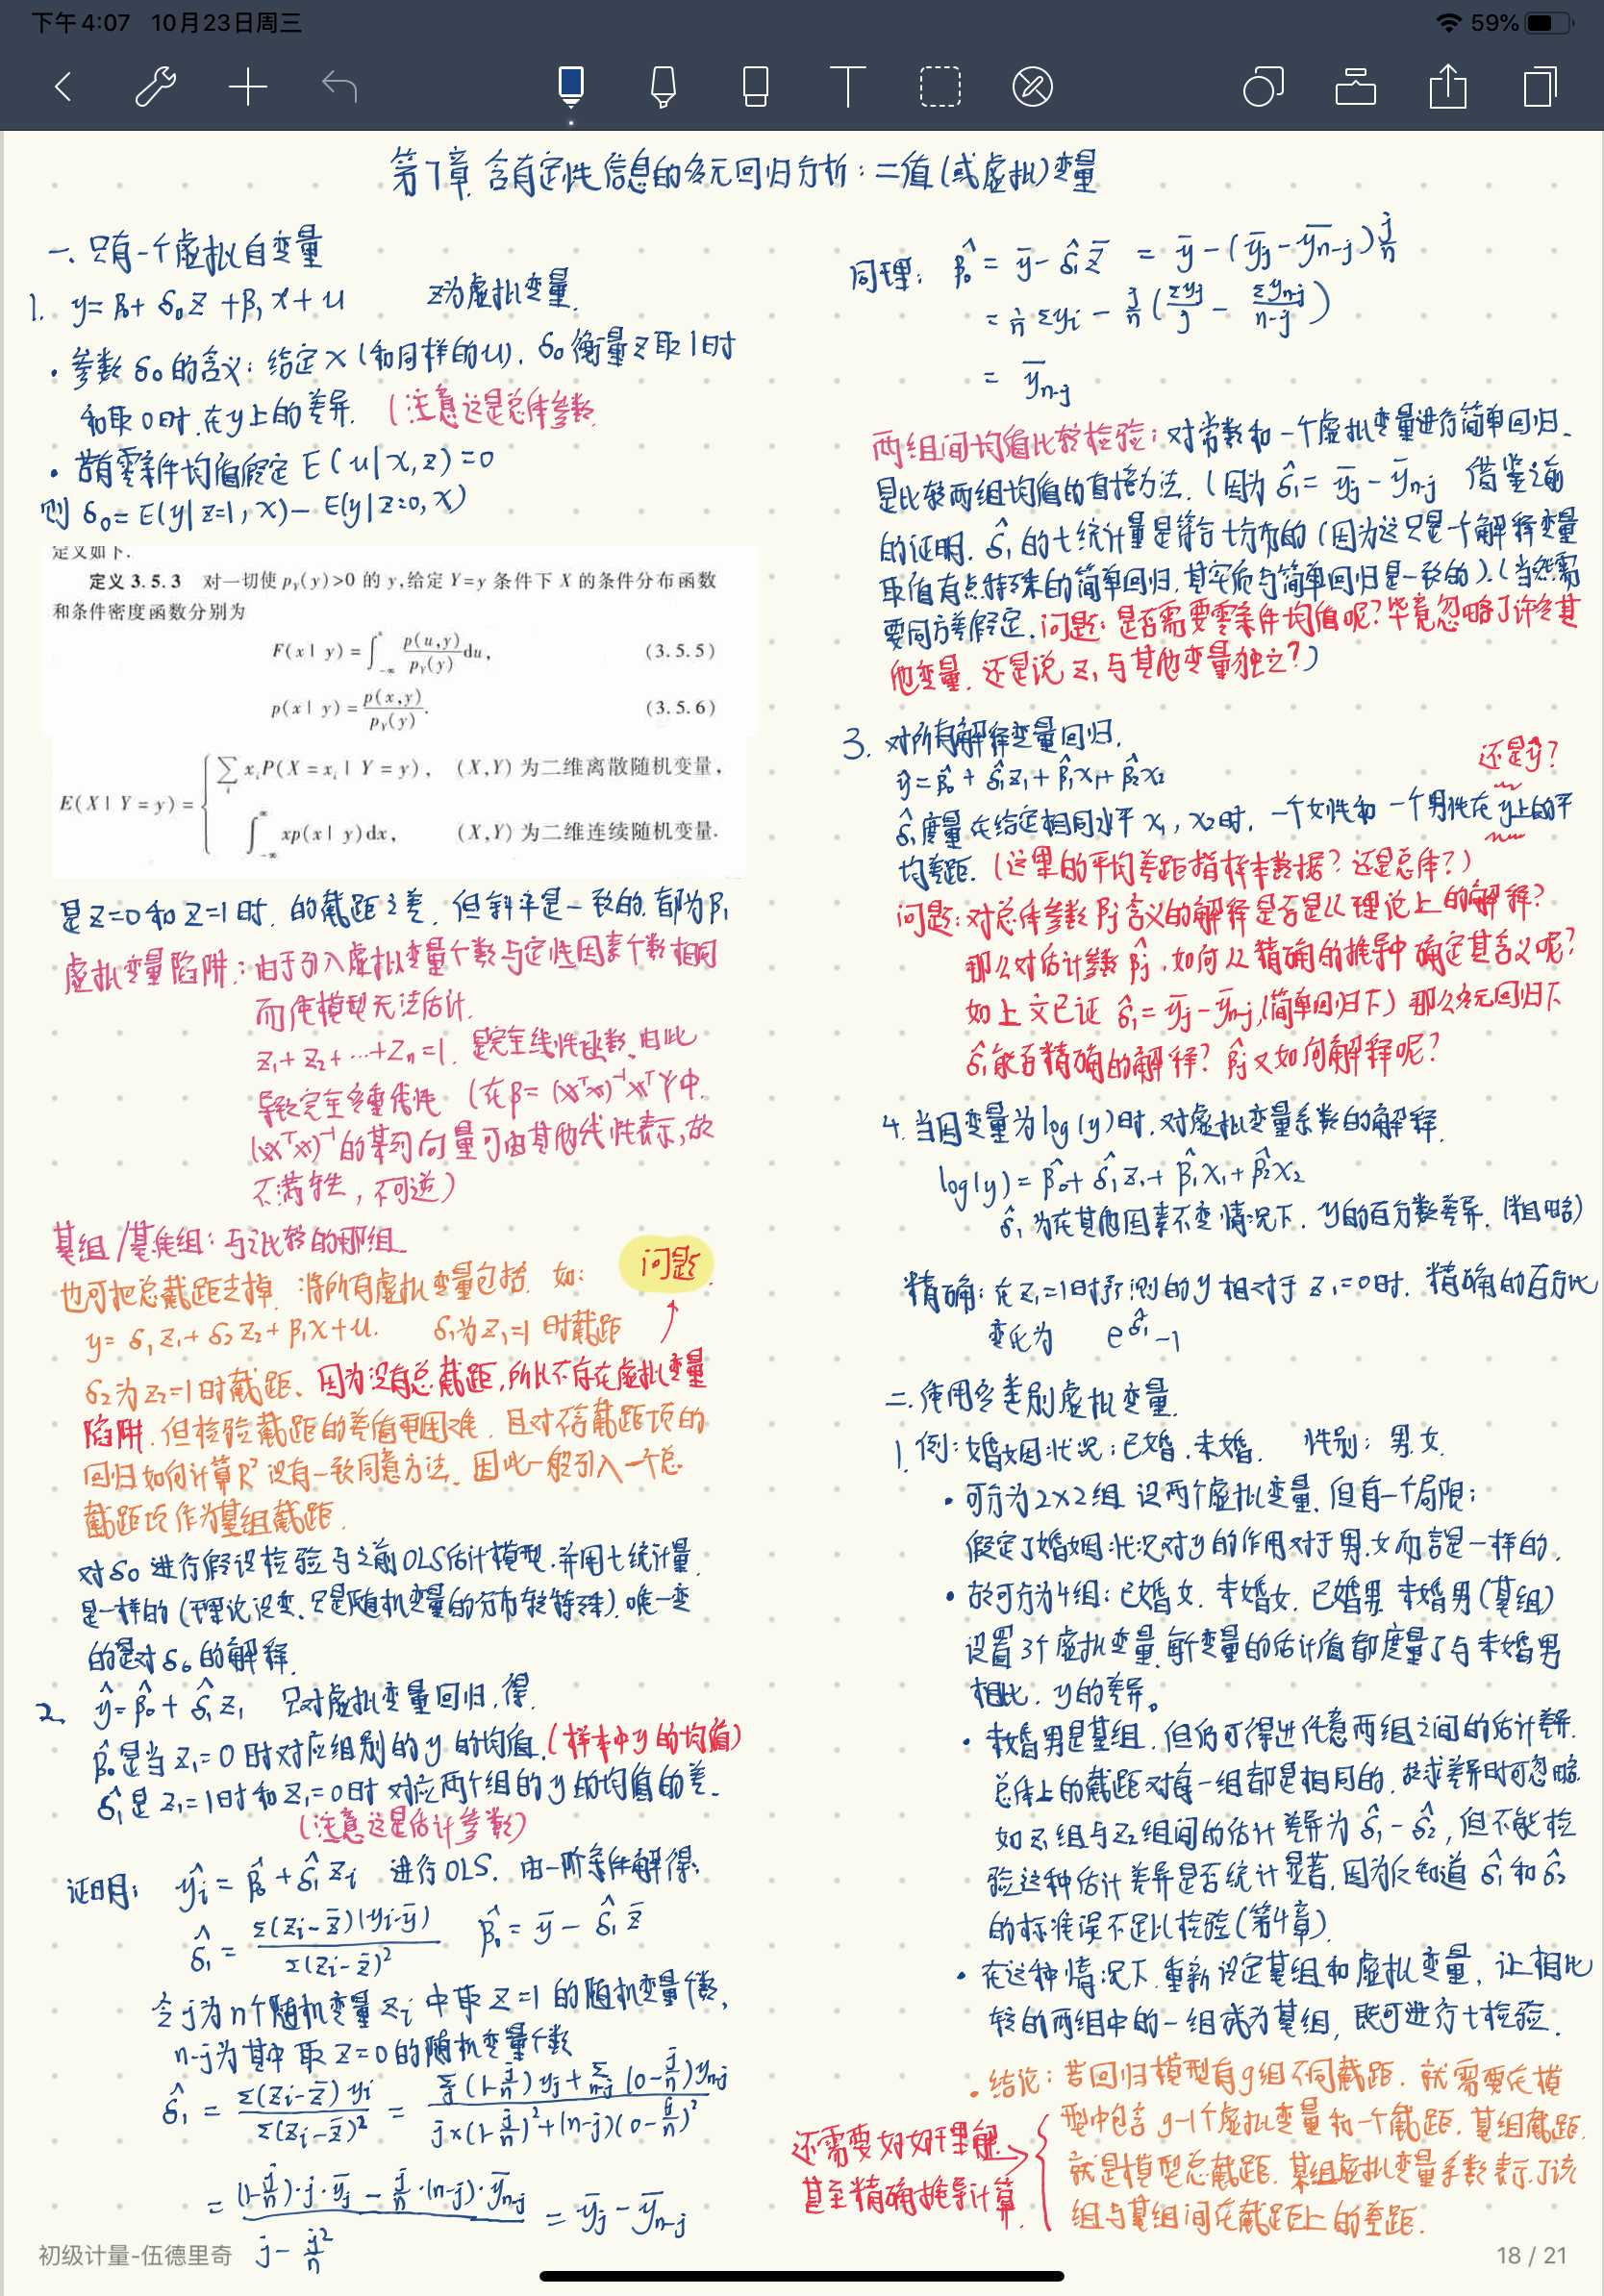 下午4:07 10月23日周三
59%
第7章 含有定性信息的多元回归分析:二值(或虚拟)变量
一. 只有一个虚拟自变量
1. y=β₀+ δ₀z +β₁x+u z为虚拟变量.
· 参数δ₀的含义: 给定x(和同样的u), δ₀衡量z取1时
和取0时.在y上的差异. (注意这是总体参数
· 若有零条件均值假定 E(u|x,z)=0
则 δ₀=E(y|z=1,x)-E(y|z=0,x)
定义如下.
定义 3.5.3 对一切使 p_Y(y)>0 的 y,给定 Y=y 条件下 X 的条件分布函数
和条件密度函数分别为
F(x| y)=∫_{-∞}^{x} p(u,y)/p_Y(y) du, (3.5.5)
p(x| y)=p(x,y)/p_Y(y). (3.5.6)
E(X| Y=y)={ ∑_i x_i P(X=x_i | Y=y), (X,Y)为二维离散随机变量,
∫_{-∞}^{∞} xp(x| y)dx, (X,Y)为二维连续随机变量.
是z=0和z=1时. 的截距之差. 但斜率是一致的.都为β₁
虚拟变量陷阱:由于引入虚拟变量个数与定性因素个数相同
而使模型无法估计.
z₁+z₂+…+zₙ=1. 是完全线性函数.由此
导致完全多重共线性 (在β=(xᵀx)⁻¹xᵀY中.
(xᵀx)⁻¹的某列向量可由其他线性表示,故
不满秩,不可逆)
基组/基准组:与之比较的那组.
也可把总截距去掉. 将所有虚拟变量包括. 如: 问题
y= δ₁z₁+δ₂z₂+β₁x+u. δ₁为z₁=1时截距
δ₂为z₂=1时截距、因为没有总截距,所以不存在虚拟变量
陷阱.但检验截距的差值更困难. 且对不含截距项的
回归如何计算R²没有一致同意方法. 因此一般引入一个总
截距项作为基组截距.
对δ₀进行假设检验与之前OLS估计模型.并用t统计量
是一样的(理论没变.只是随机变量的分布较特殊).唯一变
的是对δ₀的解释.
2. ŷ=β̂₀+δ̂₁z₁ 只对虚拟变量回归.得.
β̂₀是当z₁=0时对应组别的y的均值.(样本中y的均值)
δ̂₁是z₁=1时和z₁=0时对应两个组的y的均值的差.
(注意这是估计参数)
证明: ŷᵢ=β̂₀+δ̂₁zᵢ 进行OLS. 由一阶条件解得:
δ̂₁= Σ(zᵢ-z̄)(yᵢ-ȳ)/Σ(zᵢ-z̄)² β̂₀=ȳ-δ̂₁z̄
令j为n个随机变量zᵢ中取z=1的随机变量个数,
n-j为其中取z=0的随机变量个数
δ̂₁ = Σ(zᵢ-z̄)yᵢ/Σ(zᵢ-z̄)² = [Σ_j(1-j/n)y_j+Σ_{n-j}(0-j/n)y_{n-j}]/[j×(1-j/n)²+(n-j)(0-j/n)²]
= [(1-j/n)·j·ȳ_j - j/n·(n-j)·ȳ_{n-j}]/[j-j²/n] = ȳ_j-ȳ_{n-j}
同理: β̂₀= ȳ-δ̂₁z̄ = ȳ-(ȳ_j-ȳ_{n-j})j/n
= 1/n Σyᵢ - j/n(Σy_j/j - Σy_{n-j}/(n-j))
= ȳ_{n-j}
两组间均值比较检验:对常数和一个虚拟变量进行简单回归.
是比较两组均值的直接方法.(因为δ̂₁=ȳ_j-ȳ_{n-j} 借鉴之前
的证明. δ̂₁的t统计量是符合t分布的(因为这只是一个解释变量
取值有点特殊的简单回归.其实质与简单回归是一致的).(当然需
要同方差假定.问题:是否需要零条件均值呢?毕竟忽略了许多其
他变量.还是说z₁与其他变量独立?)
3. 对所有解释变量回归.
ŷ=β̂₀+δ̂₁z₁+β̂₁x₁+β̂₂x₂
还是ŷ?
δ̂₁度量在给定相同水平x₁,x₂时. 一个女性和一个男性在y上的平
均差距.(这里的平均差距指样本数据?还是总体?)
问题:对总体参数βj含义的解释是否是从理论上的解释?
那么对估计参数β̂j.如何从精确的推导中确定其含义呢?
如上文已证 δ̂₁=ȳ_j-ȳ_{n-j},(简单回归下)那么多元回归下
δ̂₁能否精确的解释? β̂j又如何解释呢?
4. 当因变量为log(y)时.对虚拟变量系数的解释.
log(y)=β̂₀+δ̂₁z₁+β̂₁x₁+β̂₂x₂
δ̂₁为在其他因素不变情况下. y的百分数差异.(粗略)
精确:在z₁=1时预测的y相对于z₁=0时.精确的百分比
变化为 e^δ̂₁-1
二.使用多类别虚拟变量.
1. 例:婚姻状况:已婚.未婚. 性别:男.女.
· 可分为2×2组.设两个虚拟变量.但有一个局限:
假定了婚姻状况对y的作用对于男.女而言是一样的.
· 故可分为4组:已婚女.未婚女.已婚男.未婚男(基组)
设置3个虚拟变量.每个变量的估计值都度量了与未婚男
相比. y的差异。
· 未婚男是基组.但仍可得进任意两组之间的估计差异.
总体上的截距对每一组都是相同的.故求差异时可忽略.
如z₁组与z₂组间的估计差异为δ̂₁-δ̂₂,但不能检
验这种估计差异是否统计显著.因为仅知道δ̂₁和δ̂₂
的标准误不足以检验(第4章)
· 在这种情况下.重新设定基组和虚拟变量,让相比
较的两组中的一组成为基组,既可进行t检验.
· 结论:若回归模型有g组不同截距.就需要在模
型中包含g-1个虚拟变量和一个截距.基组截距.
就是模型总截距.某组虚拟变量系数表示了该
组与基组间在截距上的差距.
还需要好好理解.
甚至精确推导计算.
初级计量-伍德里奇
18 / 21